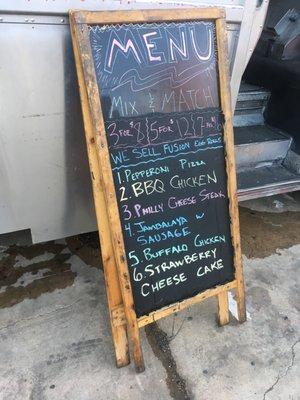 MENU
MIX & MATCH
3 FOR $8 5 FOR $12 7 FOR
WE SELL FUSION EGG ROLLS
1. PEPPERONI PIZZA
2. BBQ CHICKEN
3. PHILLY CHEESE STEAK
4. JAMBALAYA W
SAUSAGE
5. BUFFALO CHICKEN
6. STRAWBERRY
CHEESE CAKE